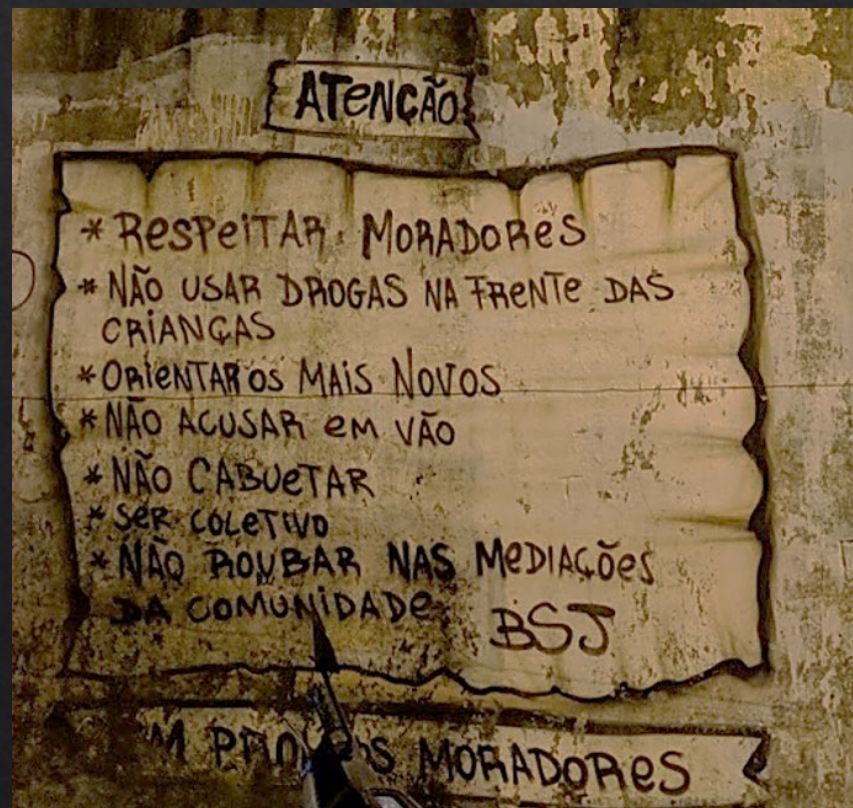 ATENÇÃO
* RESPEITAR MORADORES
* NÃO USAR DROGAS NA FRENTE DAS
CRIANÇAS
* ORIENTAR OS MAIS NOVOS
* NÃO ACUSAR EM VÃO
* NÃO CABUETAR
* SER COLETIVO
* NÃO ROUBAR NAS MEDIAÇÕES
DA COMUNIDADE
BSJ
MORADORES